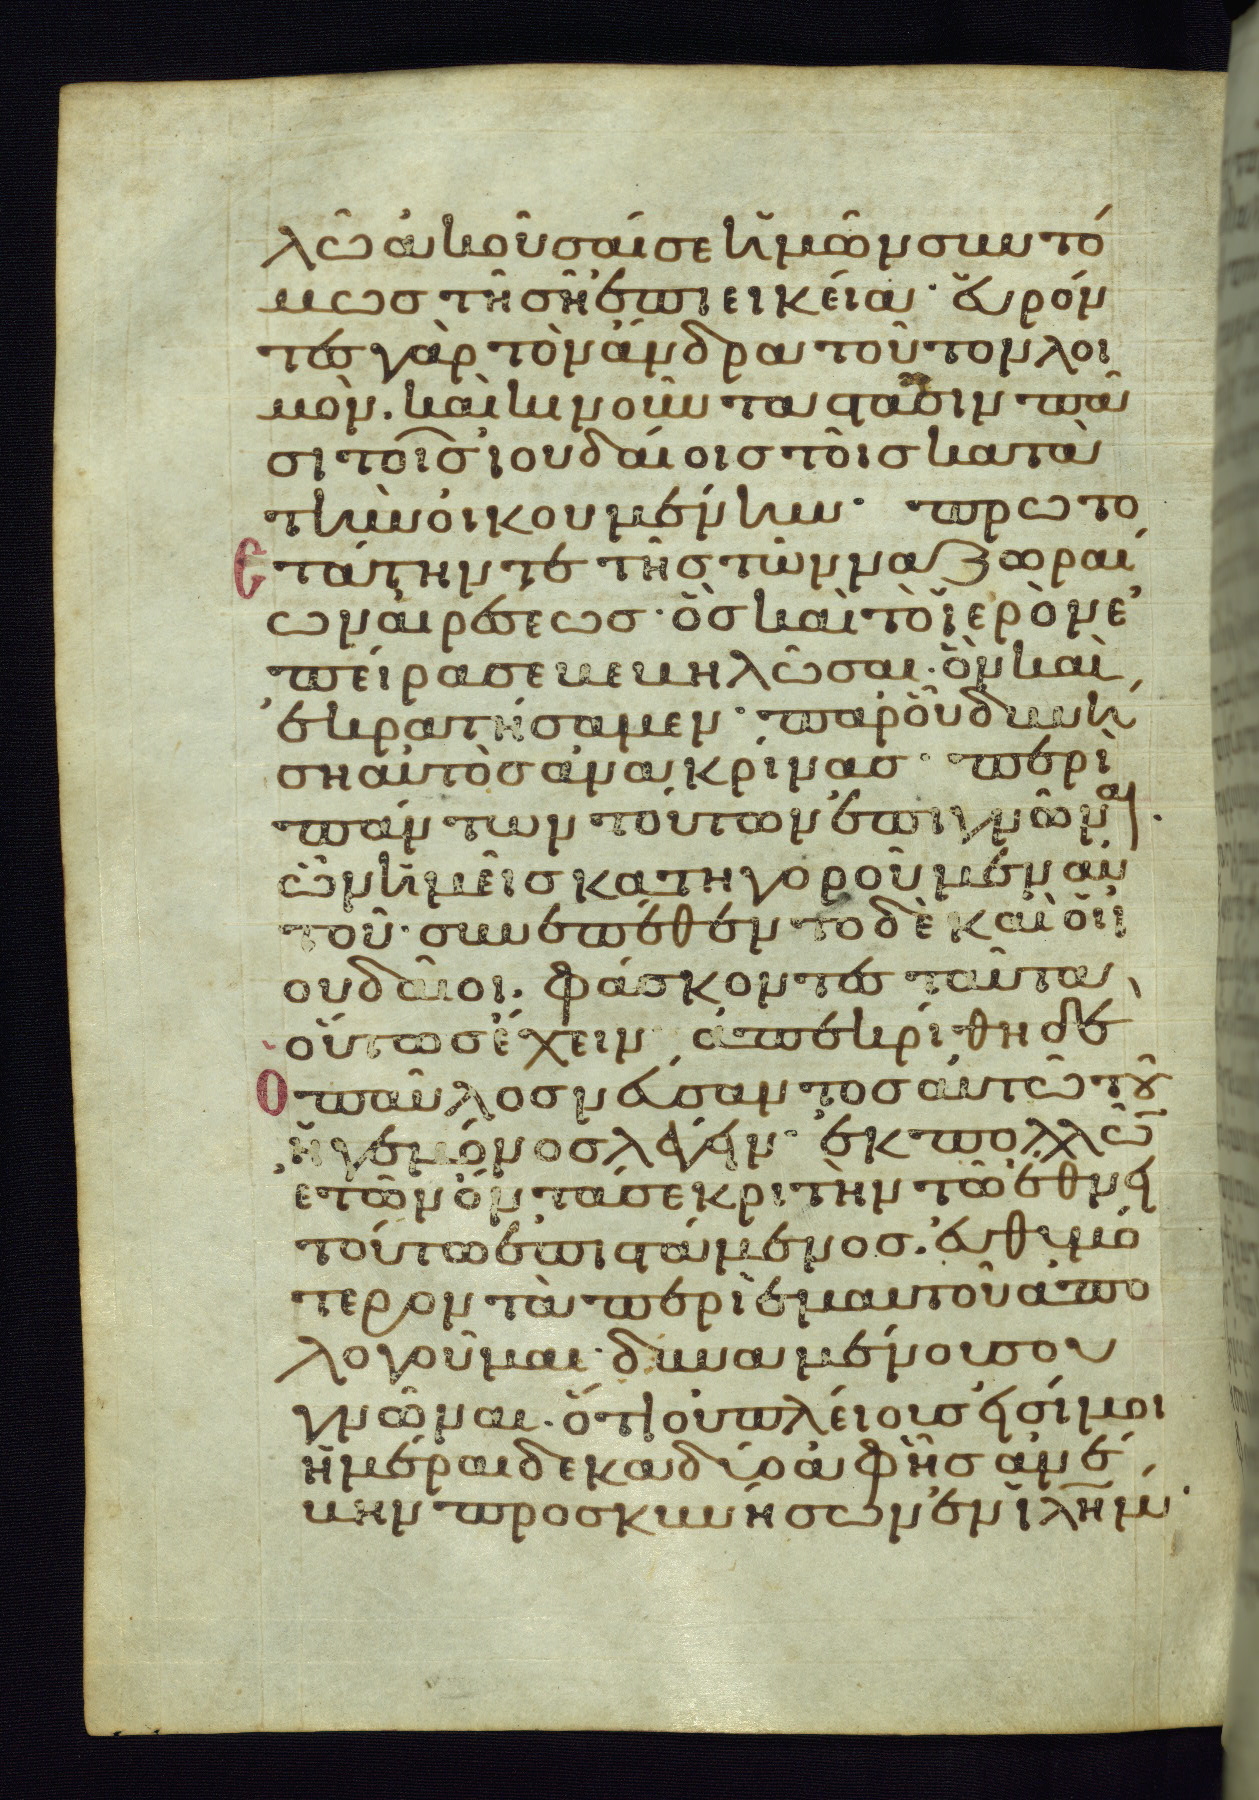 λῶ ἀκοῦσαί σε ἡμῶν συντό
μως τῆ σῆ ἐπιεικεία· εὑρόν
τες γὰρ τὸν ἄνδρα τοῦτον λοι
μὸν. καὶ κινοῦντα στάσιν πᾶ
σι τοῖς ἰουδαίοις τοῖς κατὰ
τὴν οἰκουμένην· πρωτο
στάτην τε τῆς τῶν ναζωραί
ων αἱρέσεως· ὃς καὶ τὸ ἱερὸν ἐ
πείρασε βεβηλῶσαι. ὃν καὶ
ἐκρατήσαμεν· παρ' οὗ δυνή
ση αὐτὸς ἀνακρίνας· περὶ
πάντων τούτων ἐπιγνῶναι.
ὧν ἡμεῖς κατηγοροῦμεν αὐ
τοῦ· συνεπέθεντο δὲ καὶ οἱ ἰ
ουδαῖοι. φάσκοντες ταῦτα
οὕτως ἔχειν ἀπεκρίθη δὲ
Ὁ παῦλος νεύσαντος αὐτῶ τοῦ
ἡγεμόνος λέγειν· ἐκ πολλῶν
ἐτῶν ὄντα σε κριτὴν τῶ ἔθνει
τούτω ἐπιστάμενος. εὐθυμό
τερον τὰ περὶ ἐμαυτοῦ ἀπο
λογοῦμαι· δυναμένου σου
γνῶναι. ὅτι οὐ πλείους εἰσί μοι
ἡμέραι δεκαδύο ἀφ' ἧς ἀνέ
βην προσκυνήσων ἐν ἰλῆμ·